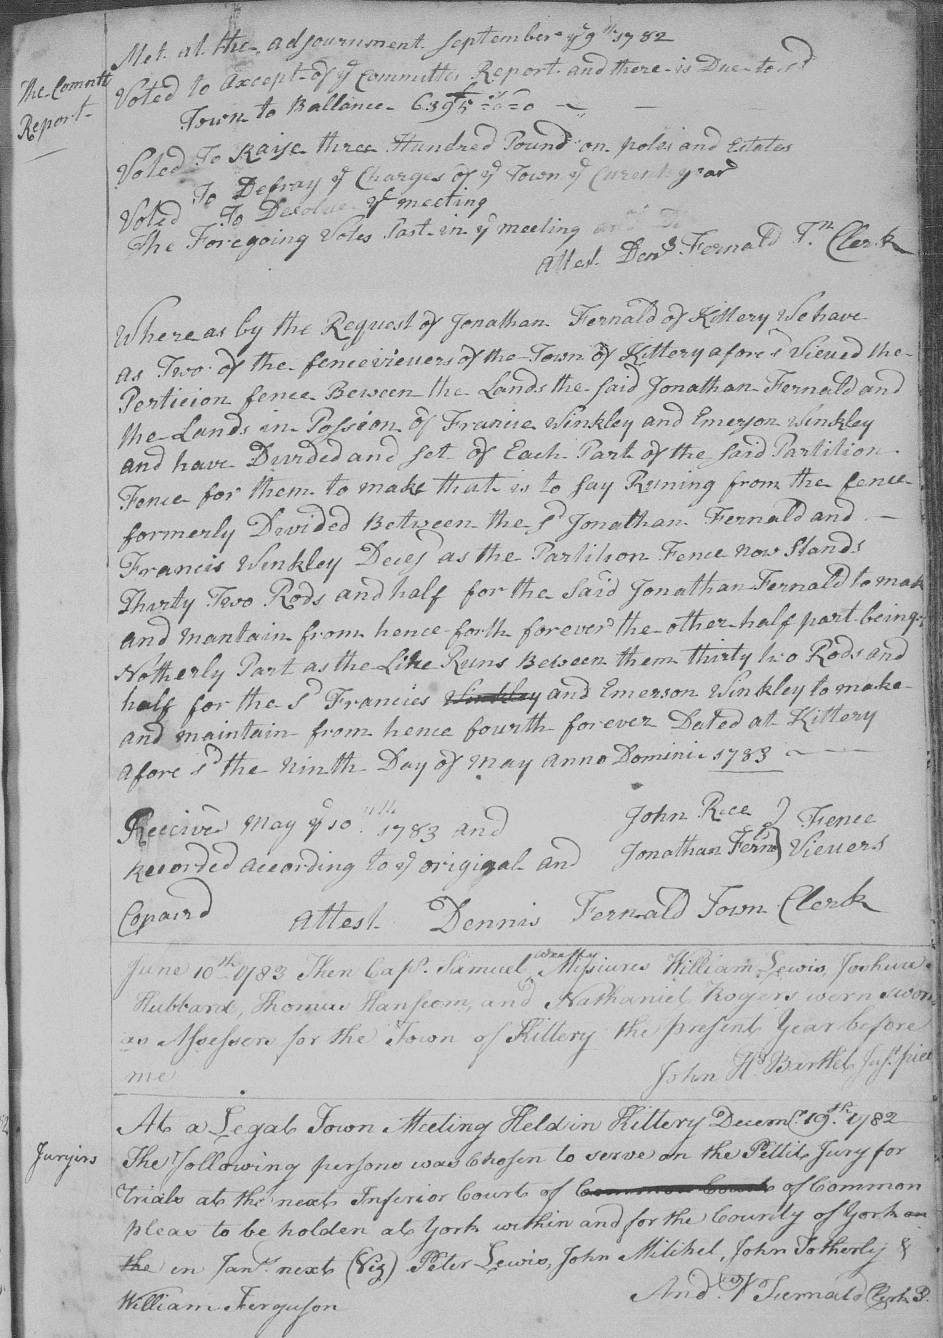 Met at the adjournment September ye 9th 1782
The Committ
Report
Voted to Except of ye Committes Report and there is Due to sd
Town to Ballance £6395=0=0
Voted To Raise three Hundred Pound on poles and Estates
To Defray ye Charges of ye Town ye Curent year
Voted To Desolve ye meeting
The Foregoing Votes Past in ye meeting
Attest Dens Fernald Tn Clerk
Where as by the Request of Jonathan Fernald of Kittery We have
as Two of the fencevieuers of the Town of Kittery afore sd Vieued the
Perticion fence Beween the Lands the said Jonathan Fernald and
the Lands in Possion of Francis Winkley and Emerson Winkley
and have Divided and set of Each Part of the said Partition
Fence for them to make that is to say Runing from the fence
formerly Divided Between the sd Jonathan Fernald and
Francis Winkley Decesd as the Partition Fence now Stands
Thirty Two Rods and half for the Said Jonathan Fernald to make
and mantain from hence forth forever the other half part being
Notherly Part as the Like Runs Beween them thirty two Rods and
half for the sd Francies Winkley and Emerson Winkley to make
and maintain from hence fourth forever Dated at Kittery
afore sd the Ninth Day of May anno Domini 1783
Receivd May ye 10th 1783 and
John Rice } Fence
recorded according to ye original and
Jonathan Fernd } Vieuers
Copaird
Attest Dennis Fernald Town Clerk
June 10th 1783 Then Capt. Samuel Messiures William Lewis, Joshua
Hubbard, Thomas Hanscom, and Nathaniel Rogers wern sworn
as Assessers for the Town of Kittery the present Year before
me
John Hd Bartlet Just. peice
At a Legal Town Meeting Held in Kittery Decemr. 19th. 1782
Juryirs
The following persons was Chosen to serve on the Pettit Jury for
Trials at the next Inferior Court of Common Court of Common
pleas to be holden at York within and for the County of York on
the in Jany. next (Viz) Peter Lewis, John Mitchel, John Fotherly &
William Ferguson
And. P Fernald Clerk P.